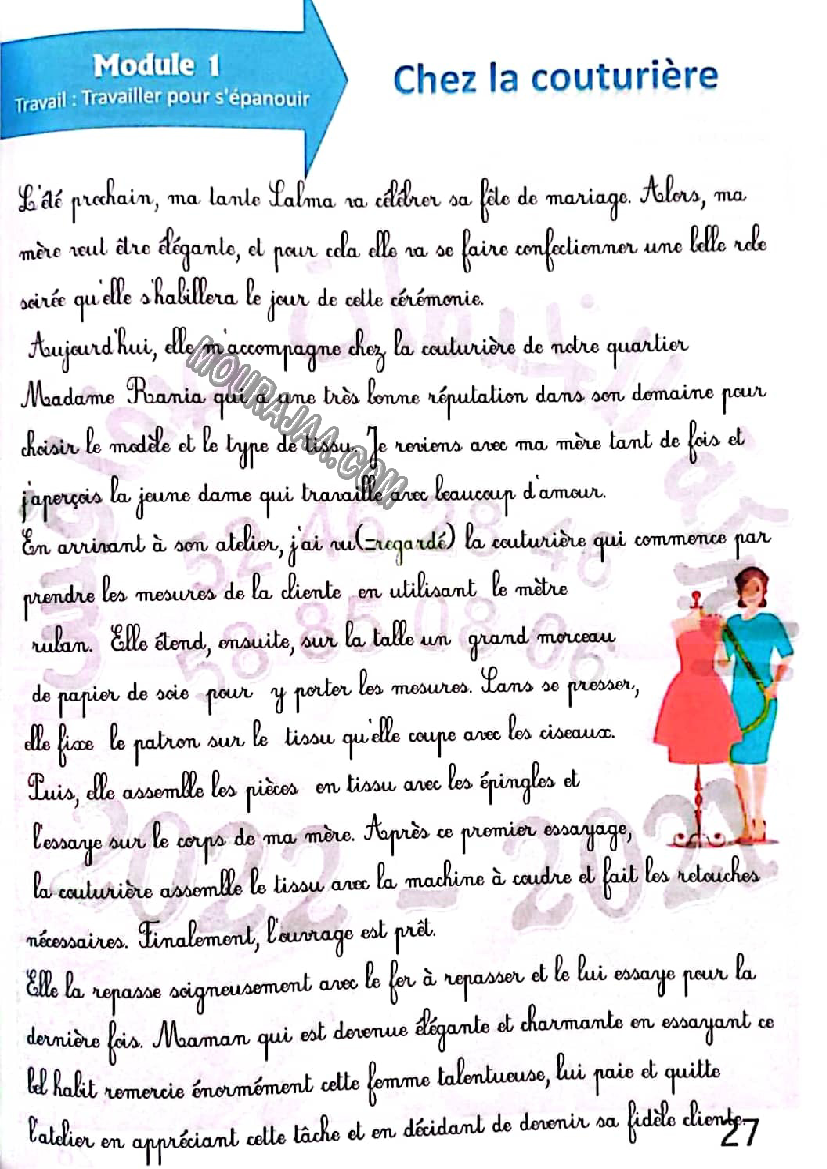 Module 1
Travail : Travailler pour s'épanouir
Chez la couturière
L'été prochain, ma tante Salma va célébrer sa fête de mariage. Alors, ma
mère veut être élégante, et pour cela elle va se faire confectionner une belle robe
soirée qu'elle s'habillera le jour de cette cérémonie.
Aujourd'hui, elle m'accompagne chez la couturière de notre quartier
Madame Rania qui a une très bonne réputation dans son domaine pour
choisir le modèle et le type de tissu. Je reviens avec ma mère tant de fois et
j'aperçois la jeune dame qui travaille avec beaucoup d'amour.
En arrivant à son atelier, j'ai vu(=regardé) la couturière qui commence par
prendre les mesures de la cliente en utilisant le mètre
ruban. Elle étend, ensuite, sur la talle un grand morceau
de papier de soie pour y porter les mesures. Sans se presser,
elle fixe le patron sur le tissu qu'elle coupe avec les ciseaux.
Puis, elle assemble les pièces en tissu avec les épingles et
l'essaye sur le corps de ma mère. Après ce premier essayage,
la couturière assemble le tissu avec la machine à coudre et fait les retouches
nécessaires. Finalement, l'ouvrage est prêt.
Elle la repasse soigneusement avec le fer à repasser et le lui essaye pour la
dernière fois. Maman qui est devenue élégante et charmante en essayant ce
bel habit remercie énormément cette femme talentueuse, lui paie et quitte
l'atelier en appréciant cette tâche et en décidant de devenir sa fidèle cliente.
27
MOURAJAA.COM
52 46 28 48
58 85 08 06
2022 - 2021